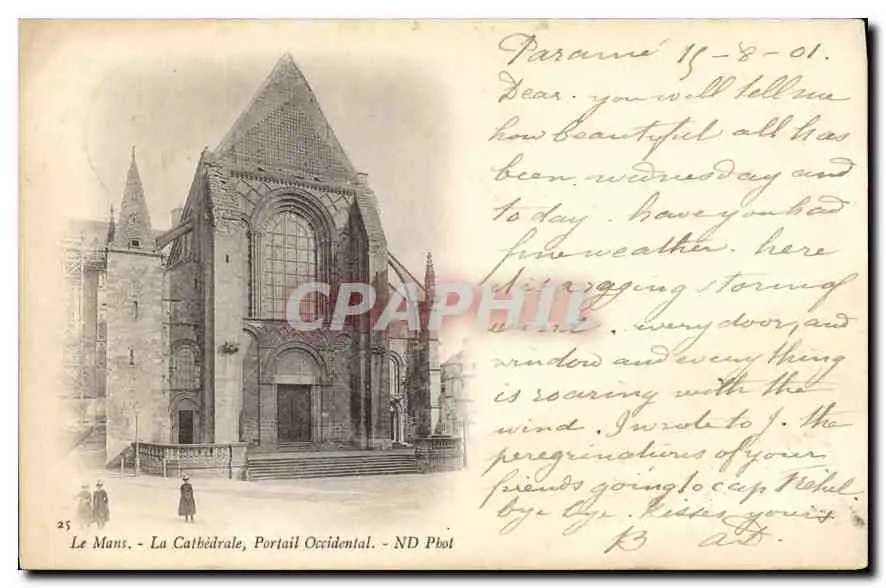 Paramé 15-8-01.
Dear. you will tell me
how beautiful all has
been. wednesday and
to day. have you had
fine weather. here
it is raging storm of
wind. every door, and
window and every thing
is roaring with the
wind. I wrote to J. the
peregrinations of your
friends going to cap Fréhel.
bye bye. Kisses yours
B AD.
CPAPHIL
25
Le Mans. - La Cathédrale, Portail Occidental. - ND Phot